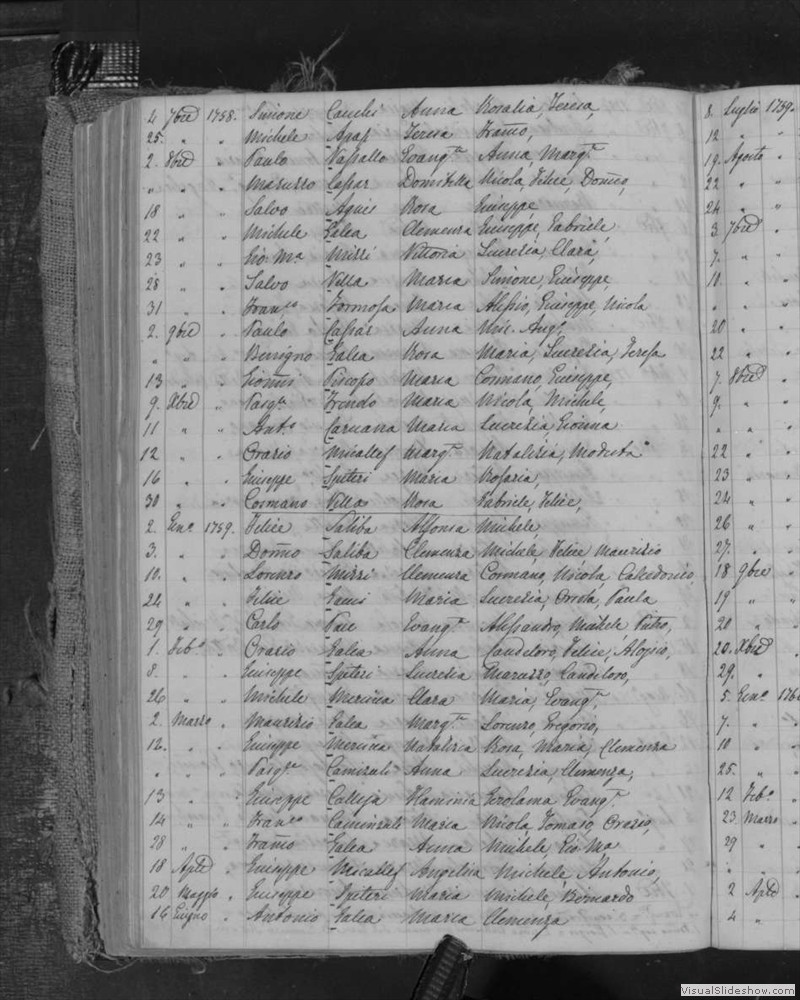 4 7bre 1758. Simone Cauchi Anna Rosalia, Teresa,
25. " " Michele Agas Teresa
2. 8bre " Paulo Vassallo Evang.ta Anna Marg.ta
" " " Maruzzo Caspar Domitilla Nicola, Felice, Dom.co,
18 " " Salvo Agius Rosa Giuseppe,
22 " " Michele Galea Clemenza Giuseppe, Gabriele,
23 " " Gio: Ma Mizzi Vittoria Lucrezia, Clara,
28 " " Salvo Villa Maria Simone, Giuseppe,
31 " " Fran.co Formosa Maria Alessio, Giuseppe, Nicola
2. 9bre " Paulo Caspar Anna
" " " Benigno Galea Rosa Maria, Lucrezia, Teresa
13 " " Gionni Piscopo Maria Cosmano, Giuseppe,
9. Xbre " Pasq.le Maria Nicola, Michele,
11 " " Ant.o Caruana Maria Lucrezia, Gionna
12 " " Orazio Micallef Marg.ta Natalizia, Modesta
16 " " Giuseppe Spiteri Maria Rosaria,
30 " " Cosmano Villa Rosa Gabriele, Felice,
2. Gen.o 1759. Felice Saliba Alfonsa Michele,
3. " " Dom.co Saliba Clemenza Michele, Felice Maurizio
10. " " Lorenzo Mizzi Clemenza Cosmano, Nicola, Calcedonio,
24 " " Felice Maria Lucrezia, Paula
29 " " Carlo Pace Evang.ta Alessandro, Michele Pietro,
1. Feb.o " Orazio Galea Anna Candeloro, Felice, Aloisio,
8. " " Giuseppe Spiteri Lucrezia Maruzzo, Candeloro,
26 " " Michele Mercina Clara Maria, Evang.ta
2. Marzo " Maurizio Galea Marg.ta Lorenzo, Gregorio,
12. " " Giuseppe Mercina Natalizia Rosa, Maria, Clemenza
" " " Pasq.le Anna Lucrezia, Clemenza,
13 " " Giuseppe Calleja Flaminia Gerolama Evang.ta
14 " " Fran.co Maria Nicola, Tomaso, Orazio,
28 " " Galea Anna Michele, Gio Ma
18 Aple " Giuseppe Micallef Angelica Michele, Antonio,
20 Maggio " Giuseppe Spiteri Maria Michele, Bernardo
16 Giugno " Antonio Galea Maria Clemenza
8. Luglio 1759.
12 " "
19. Agosto "
22 " "
24 " "
3 7bre "
7. " "
10. " "
" " "
20 " "
22 " "
7. 8bre "
9. " "
" " "
22 " "
23 " "
24 " "
26 " "
27. " "
18 9bre "
19 " "
20 " "
20. Xbre
29. "
5. Gen.o 176
7. "
10 "
25. "
12 Feb.o
23 Marzo
29 "
" "
2 Aple
4 "
VisualSlideshow.com